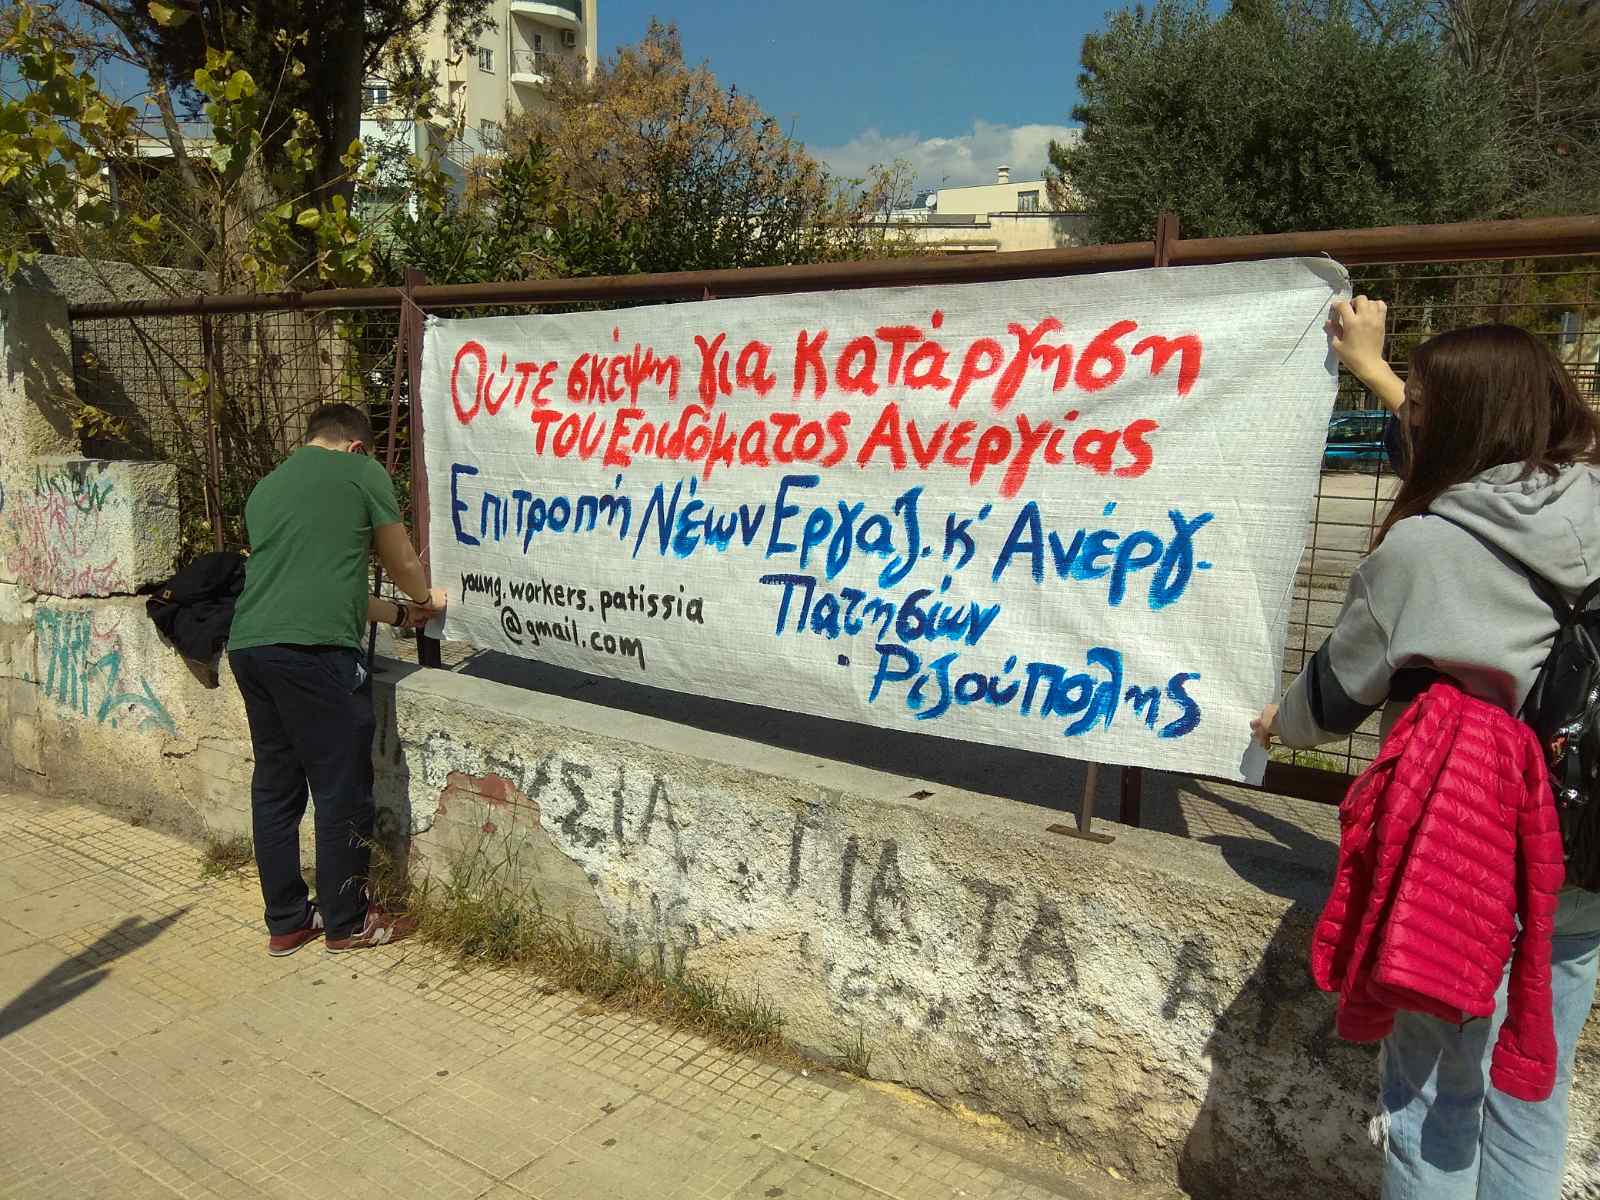 Ούτε σκέψη για κατάργηση
του Επιδόματος Ανεργίας
Επιτροπή Νέων Εργαζ. κ' Ανέργ.
Πατησίων
. Ριζούπολης
young.workers.patissia
@gmail.com
ΓΙΑ ΤΑ